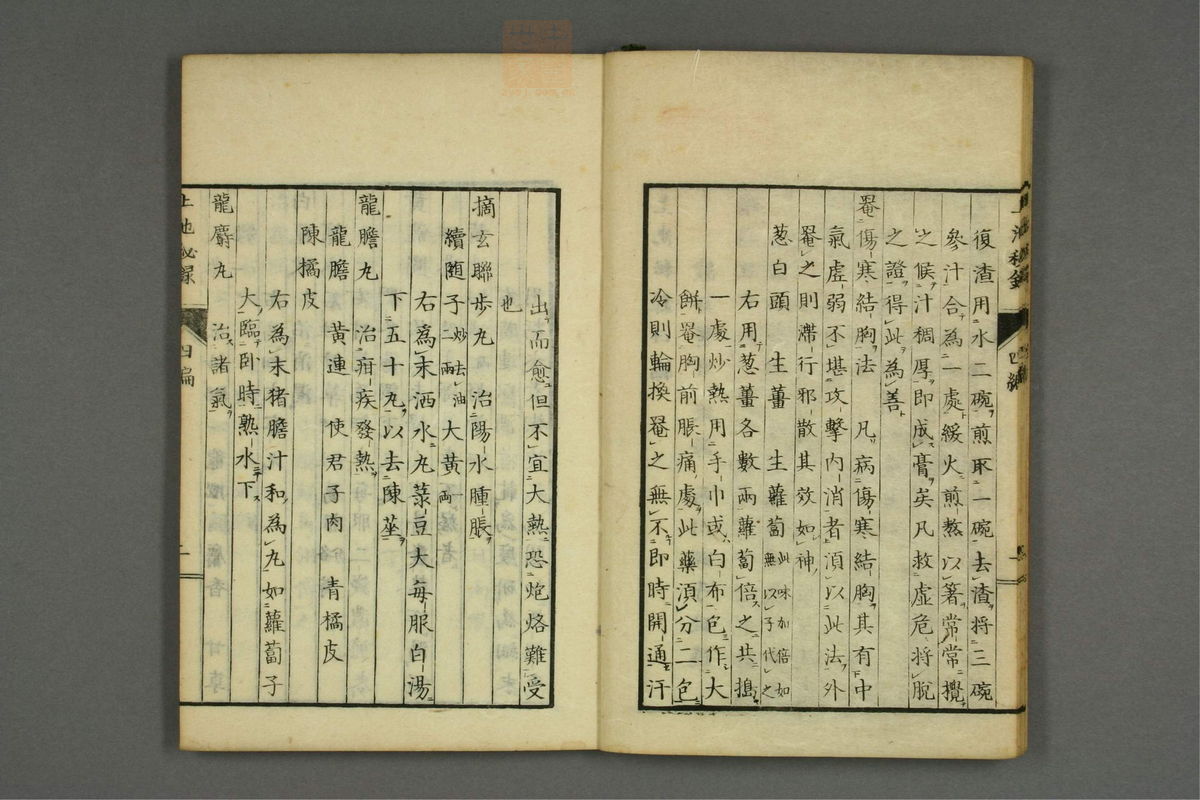 復渣用水二碗煎取一碗去渣將三碗
參汁合為一處緩火煎熬以箸常常攪
之候汁稠厚即成膏矣凡救虛危將脫
之證得此為善
罨傷寒結胸法　凡病傷寒結胸其有中
氣虛弱不堪攻擊內消者須以此法外
罨之則滯行邪散其效如神
葱白頭　生薑　生蘿蔔此味加倍如無以子代之
右用葱薑各數兩蘿蔔倍之共搗
一處炒熱用手巾或白布包作大
餅罨胸前脹痛處此藥須分二包
冷則輪換罨之無不即時開通汗
出而愈但不宜大熱恐炮烙難受
也
摘玄聯步丸　治陽水腫脹
續随子二兩炒去油　大黃一兩
右為末洒水丸菉豆大每服白湯
下五十丸以去陳莝
龍膽丸　治疳疾發熱
龍膽　黃連　使君子肉　青橘皮
陳橘皮
右為末猪膽汁和為丸如蘿蔔子
大臨卧時熟水下
龍麝丸　治諸氣
上池秘录　四編